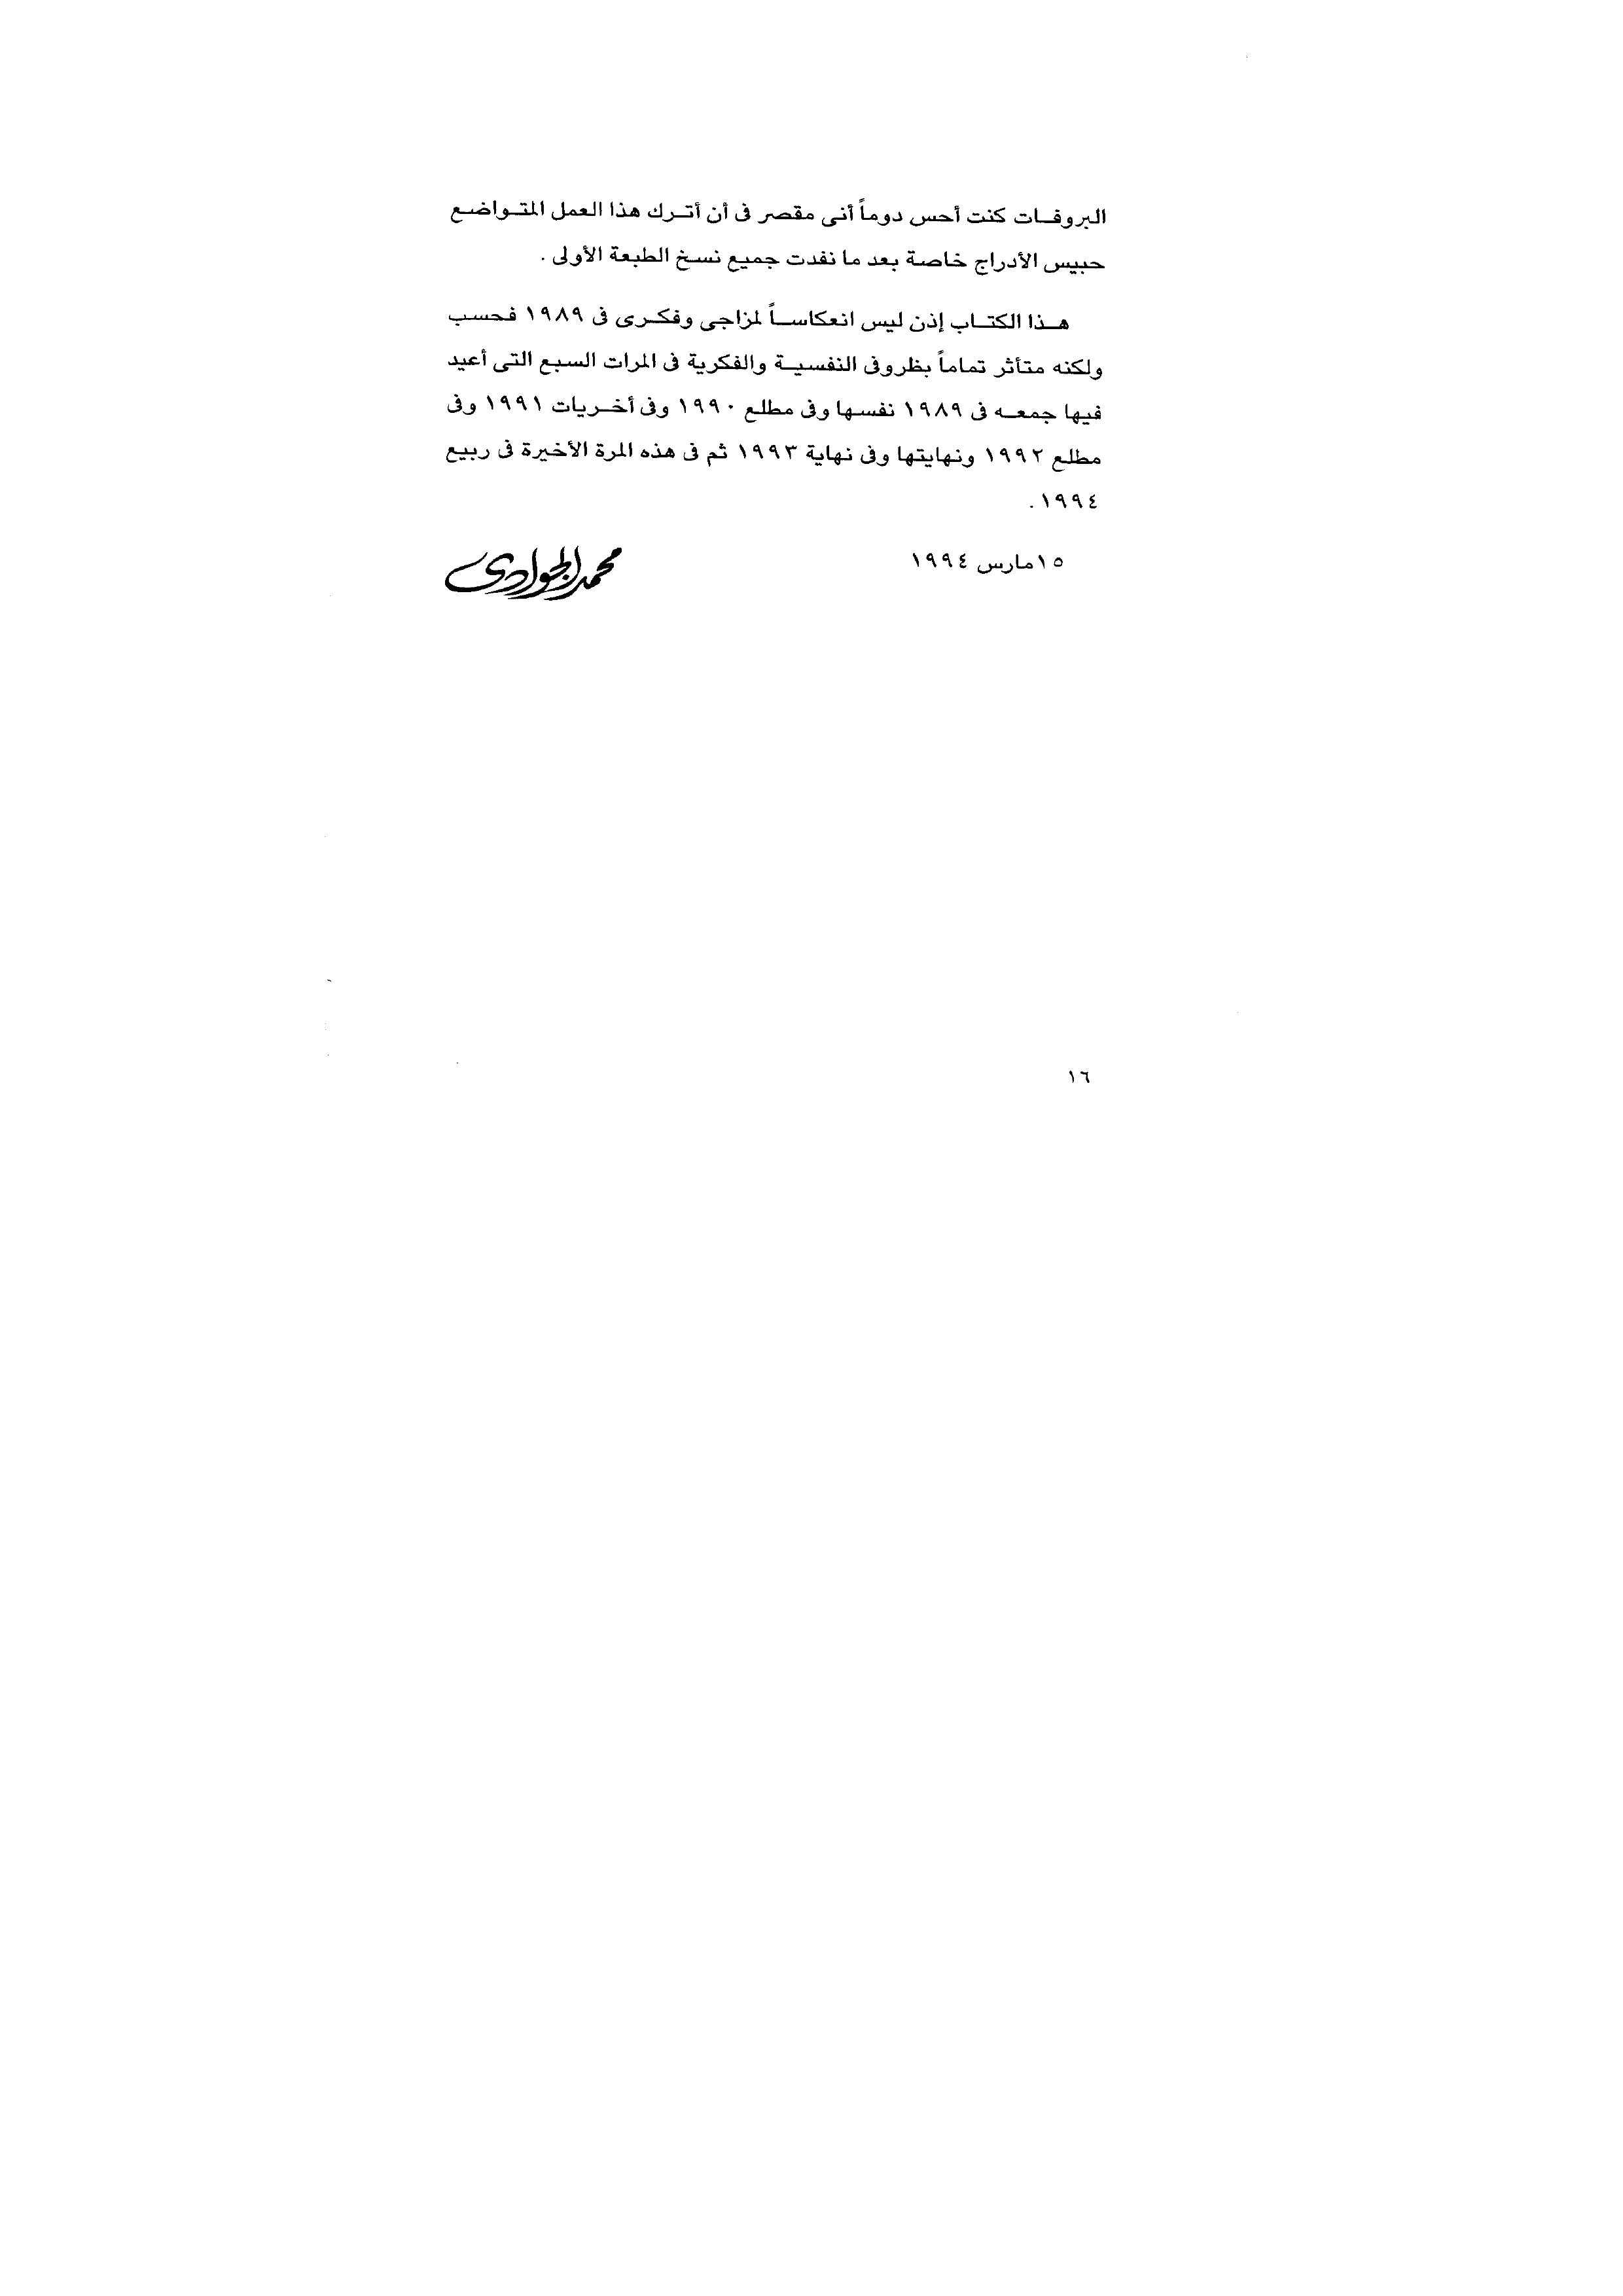 البروفات كنت أحس دوماً أنى مقصر فى أن أترك هذا العمل المتواضع
حبيس الأدراج خاصة بعد ما نفدت جميع نسخ الطبعة الأولى .
هذا الكتاب إذن ليس انعكاساً لمزاجى وفكرى فى ١٩٨٩ فحسب
ولكنه متأثر تماماً بظروفى النفسية والفكرية فى المرات السبع التى أعيد
فيها جمعه فى ١٩٨٩ نفسها وفى مطلع ١٩٩٠ وفى أخريات ١٩٩١ وفى
مطلع ١٩٩٢ ونهايتها وفى نهاية ١٩٩٣ ثم فى هذه المرة الأخيرة فى ربيع
١٩٩٤ .
١٥ مارس ١٩٩٤
محمد الجوادى
١٦